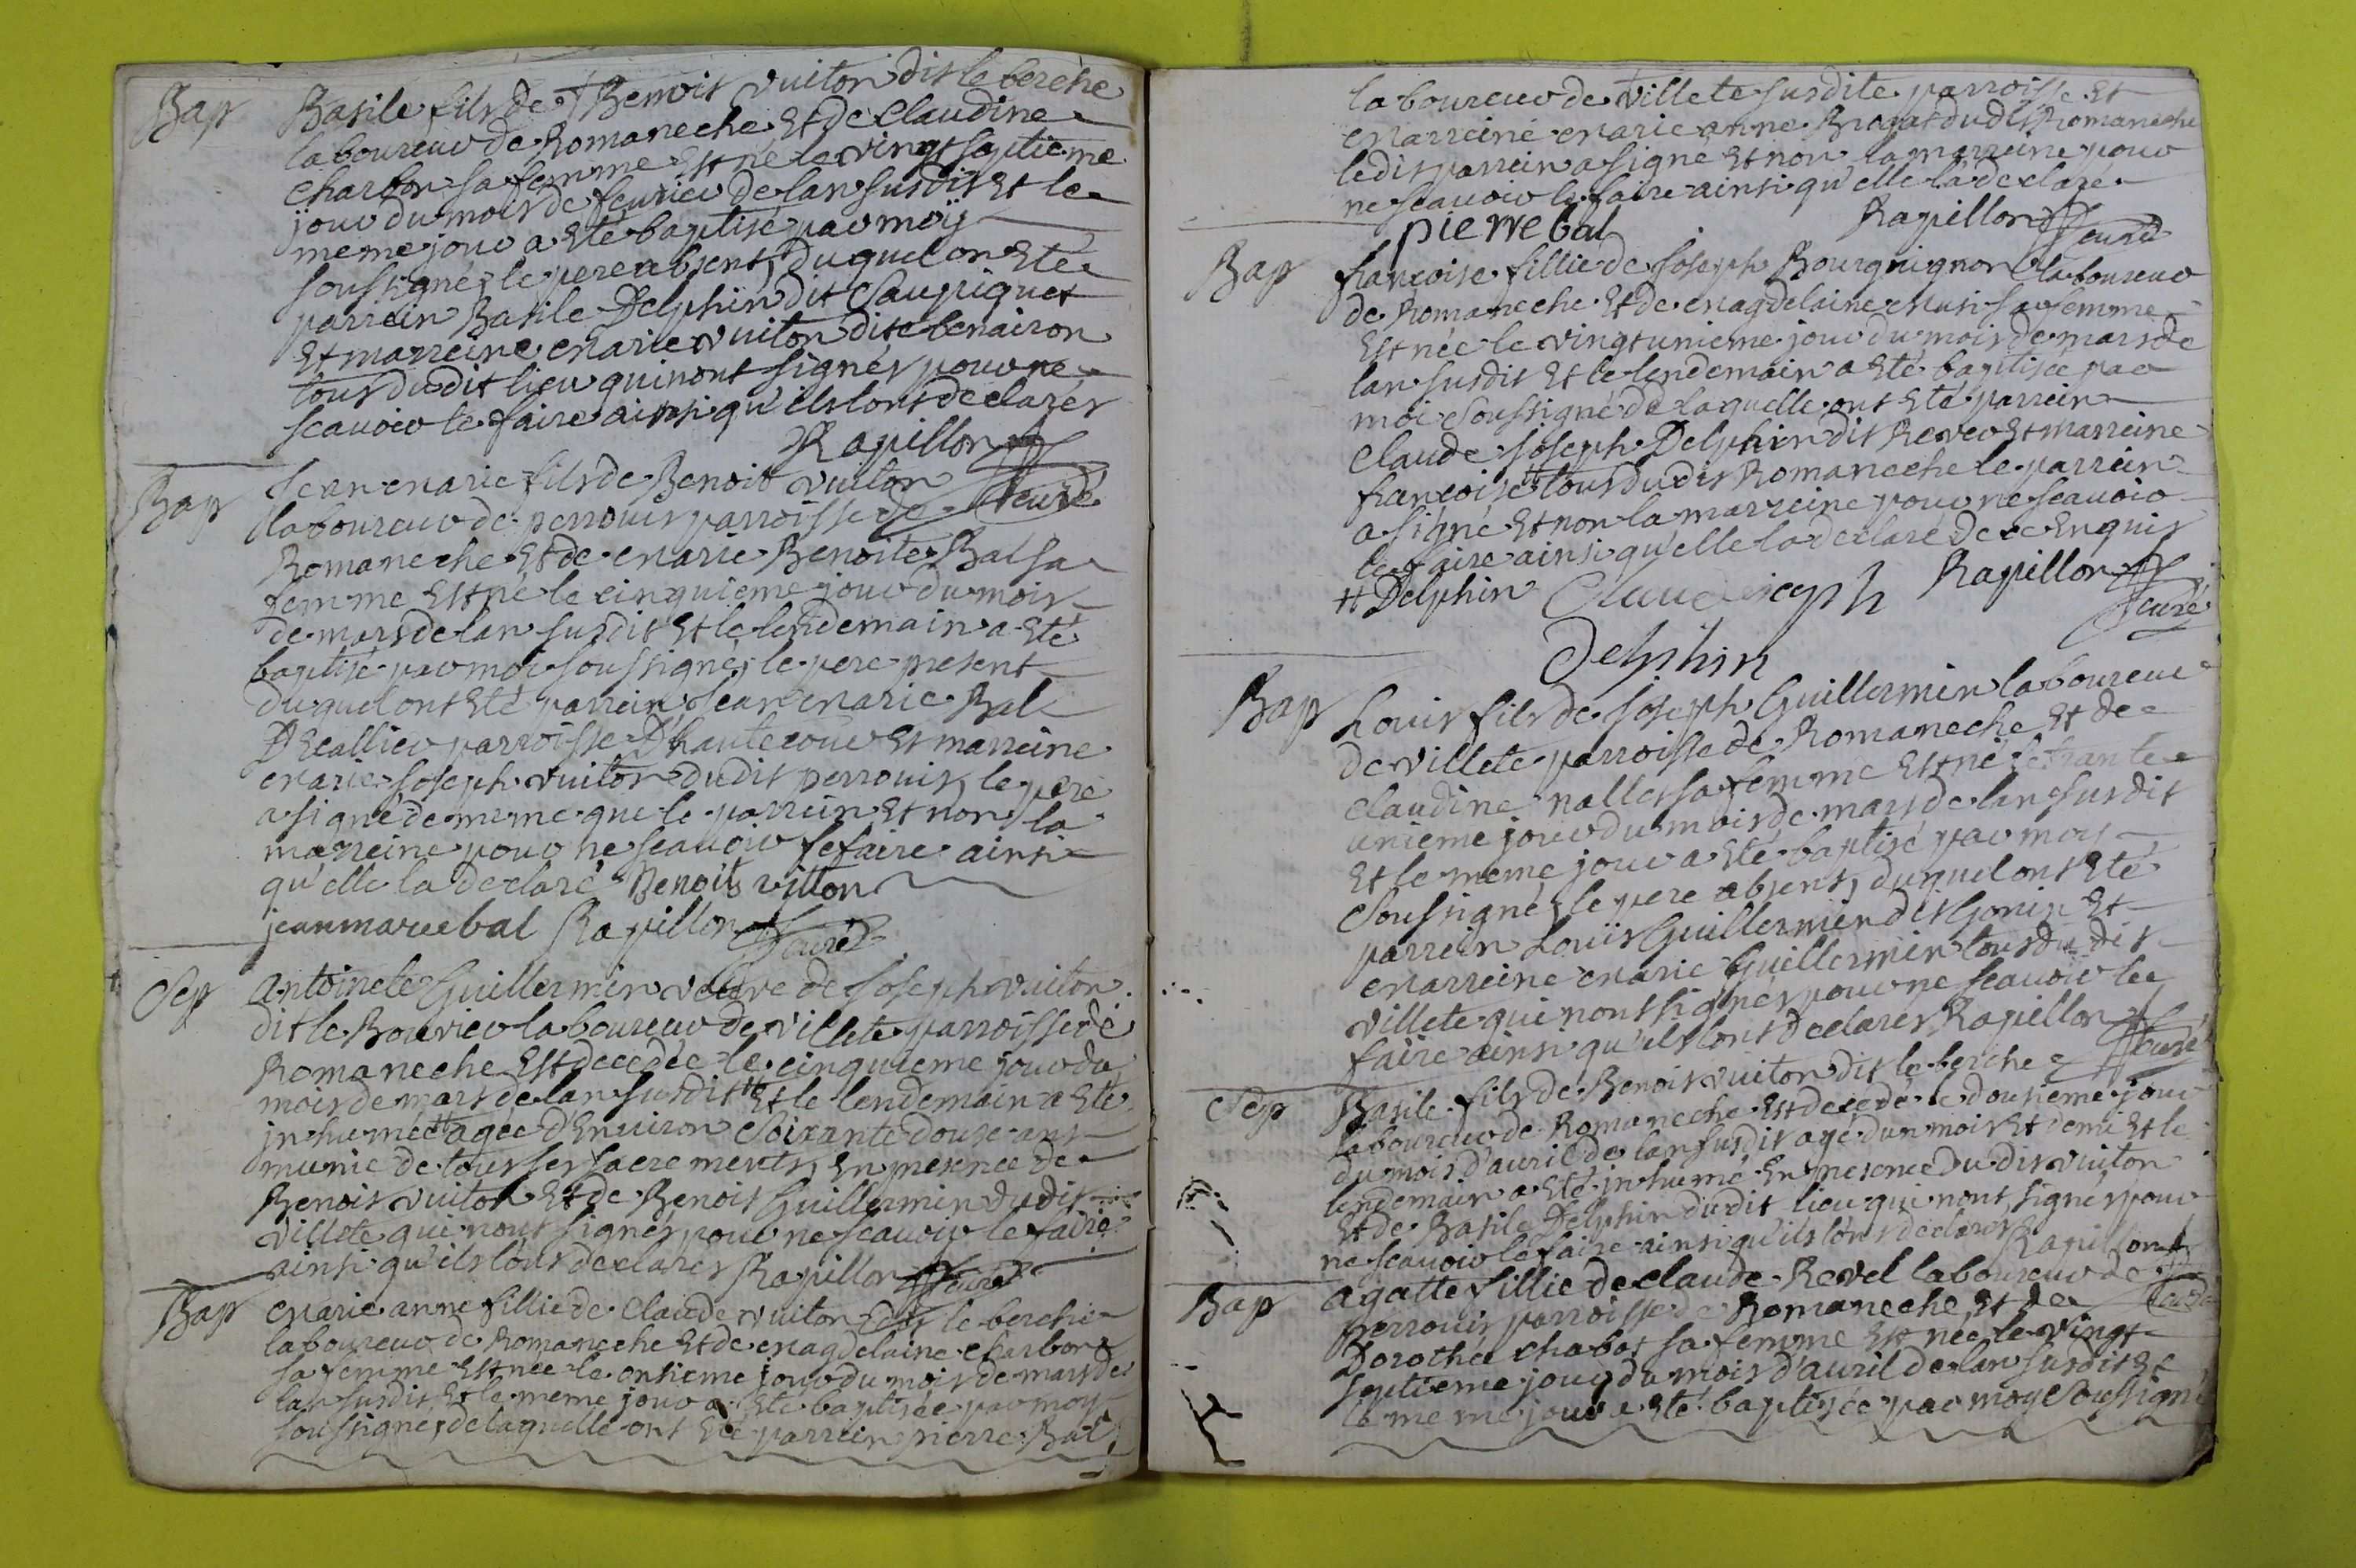 Bap Basile fils de Benoit vuiton dit le berche
laboureur de Romaneche Et de Claudine
Charbon sa femme Est né le vingt septieme
jour du mois de feurier de lan susdit Et le
meme jour a Eté baptisé par moÿ
soussigné, le pere absent, duquel on Eté
parrein Basile Delphin dit Saupiquet
Et marreine Marie vuiton dite benairon
tous dudit lieu qui nont signés pour ne
scauoir le faire ainsi qu'ils lont declarés
Rapillon
Curé
Bap Jean Marie fils de Benoit vuiton
laboureur de perrouis parroisse de
Romaneche Et de Marie Benoite Bal sa
femme Est né le cinquieme jour du mois
de mars de lan susdit Et le lendemain a Eté
baptisé par moi soussigné, le pere present
duquel ont Eté parrein Jean Marie Bal
D'Ecallier parroisse D'hautecour Et marreine
Marie Joseph vuiton dudit perrouis, le pere
a signé de meme que le parrein Et non la
marreine pour ne scauoir le faire ainsi
qu'elle la declaré Benoit vitton
jean marie bal Rapillon
Curé
Sep Antoinete Guillermin veuve de Joseph vuiton
dit le Bouvier laboureur de villete parroisse de
Romaneche Est decedée le cinquieme jour du
mois de mars de lan susdit # Et le lendemain a Eté
inhumée # agée d'Enuiron Soixante douze ans
munie de tous ses sacrements, En presence de
Benoit vuiton Et de Benoit Guillermin dudit
villete qui nont signés pour ne scauoir le faire
ainsi qu'ils lont declarés Rapillon Curé
Bap Marie anne fillie de Claude vuiton dit le berche
laboureur de Romaneche Et de Magdelaine Charbon
sa femme Est née le onsieme jour du mois de mars de
lan susdit, Et le meme jour a Eté baptisée par moy
soussigné, de laquelle ont Eté parrein pierre Bal
laboureur de villete susdite parroisse Et
Marreine Marie anne Brogat dudit Romaneche
ledit parrein a signé Et non la marreine pour
ne scauoir le faire ainsi qu'elle la declaré
pierre bal Rapillon
Curé
Bap francoise fillie de Joseph Bourguignon laboureur
de Romaneche Et de Magdelaine sa femme
Est née le vingt unieme jour du mois de mars de
lan susdit Et le lendemain a Eté baptisée par
moi soussigné de laquelle ont Eté parrein
Claude Joseph Delphin dit Rever Et marreine
francoise # tous dudit Romaneche le parrein
a signé Et non la marreine pour ne scauoir
le faire ainsi qu'elle la declaré de ce Enquis
# Delphin Claude ioseph Rapillon
Curé
Delphin
Bap Louis fils de Joseph Guillermin laboureur
de villete parroisse de Romaneche Et de
Claudine nallet sa femme Est né le trante
unieme jour du mois de mars de lan susdit
Et le meme jour a Eté baptisé par moi
soussigné, le pere absent, duquel ont Eté
parrein Louis Guillermin dit Gonin Et
Marreine Marie Guillermin tous dudit
villete qui nont signés pour ne scauoir le
faire ainsi qu'ils lont declarés Rapillon
Curé
Sep Basile fils de Benoit vuiton dit le berche
laboureur de Romaneche Est decedé le dousieme jour
du mois d'auril de lan susdit agé d'un mois Et demi Et le
lendemain a Eté inhumé En presence dudit vuiton
Et de Basile Delphin dudit lieu qui nont signés pour
ne scauoir le faire ainsi qu'ils lont declarés Rapillon
Bap agatte fillie de Claude Revel laboureur de
perrouis parroisse de Romaneche Et de
Dorothée chabot sa femme Est née le vingt
septieme jour du mois d'auril de lan susdit Et
le meme jour a Eté baptisée par moy Soussigné